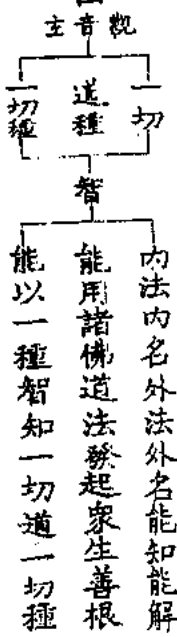 觀音主
一切
道種
一切種
智
內法內名外法外名能知能解
能用諸佛道法發起眾生善根
能以一種智知一切道一切種